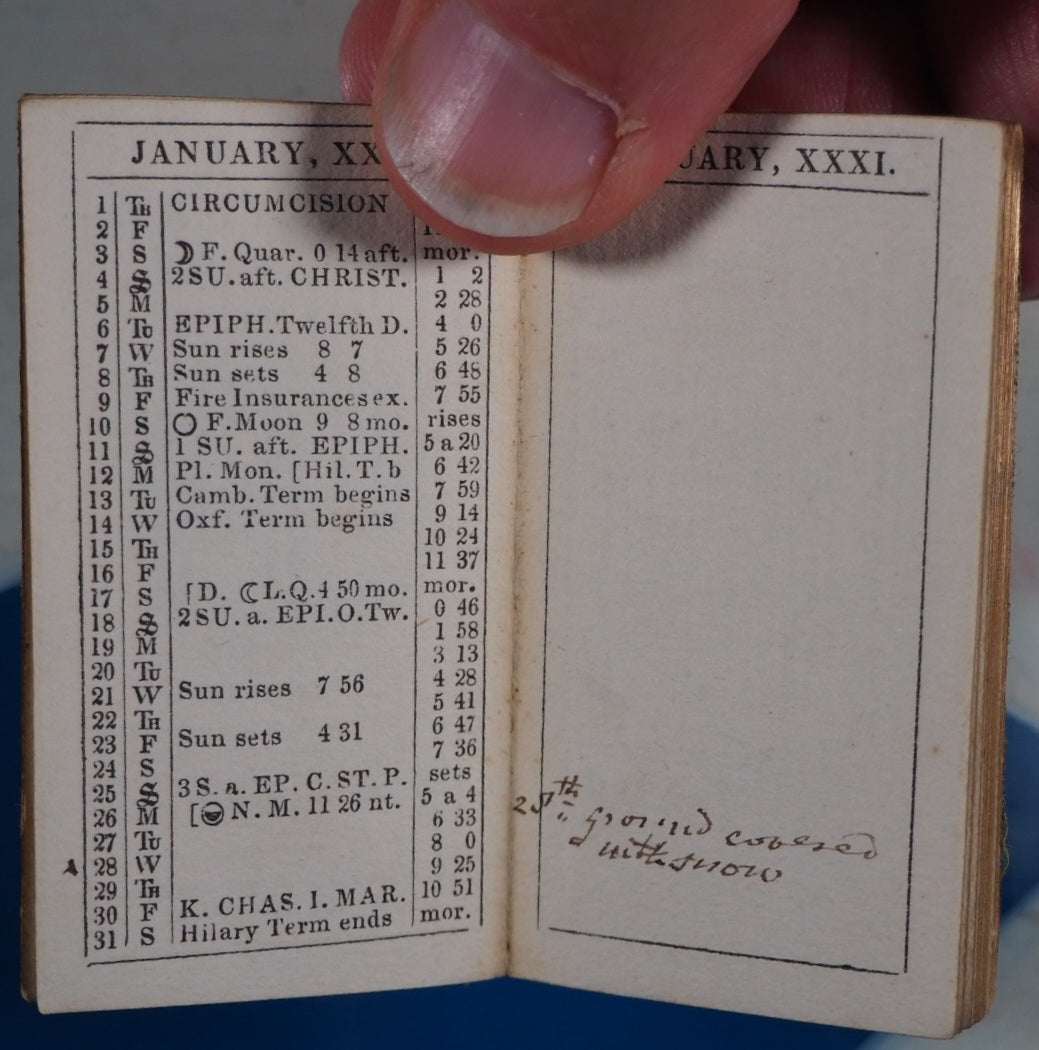 JANUARY, XX
1 Th CIRCUMCISION
2 F
3 S ☽ F. Quar. 0 14 aft. mor.
4 S 2SU. aft. CHRIST. 1 2
5 M 2 28
6 Tu EPIPH. Twelfth D. 4 0
7 W Sun rises 8 7 5 26
8 Th Sun sets 4 8 6 48
9 F Fire Insurances ex. 7 55
10 S ○ F. Moon 9 8 mo. rises
11 S 1 SU. aft. EPIPH. 5 a 20
12 M Pl. Mon. [Hil. T. b 6 42
13 Tu Camb. Term begins 7 59
14 W Oxf. Term begins 9 14
15 Th 10 24
16 F 11 37
17 S [D. ☾ L.Q. 4 50 mo. mor.
18 S 2SU. a. EPI. O. Tw. 0 46
19 M 1 58
20 Tu 3 13
21 W Sun rises 7 56 4 28
22 Th 5 41
23 F Sun sets 4 31 6 47
24 S 7 36
25 S 3 S. a. EP. C. ST. P. sets
26 M [● N. M. 11 26 nt. 5 a 4
27 Tu 6 33
28 W 8 0
29 Th 9 25
30 F K. CHAS. I. MAR. 10 51
31 S Hilary Term ends mor.
UARY, XXXI.
25th ground covered
with snow